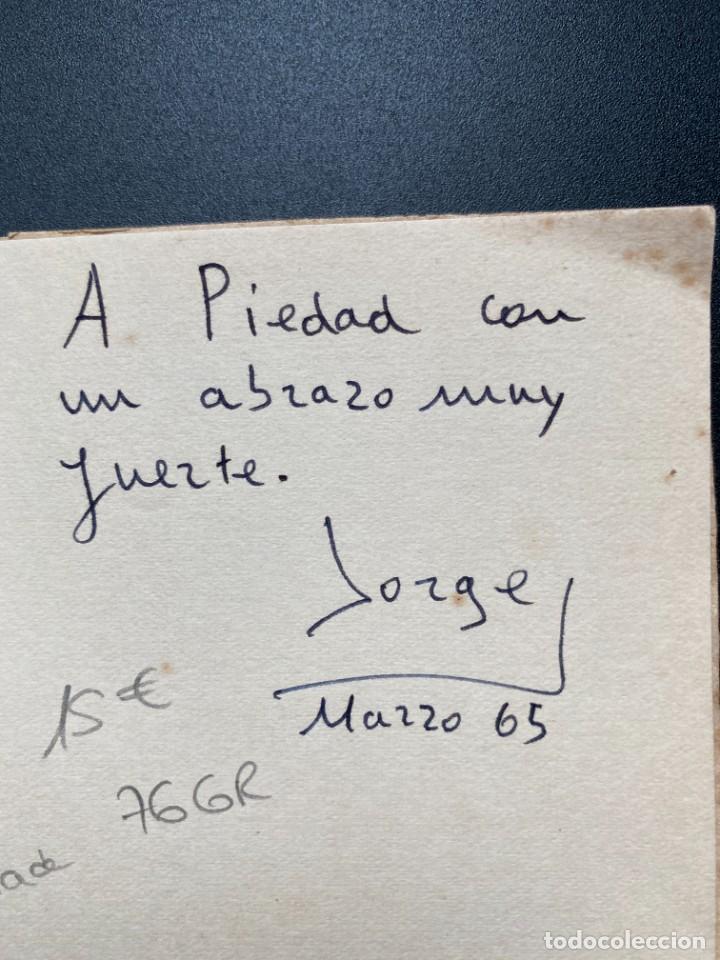 A Piedad con
un abrazo muy
fuerte.
Jorge
Marzo 65
15 €
76 GR
todocoleccion